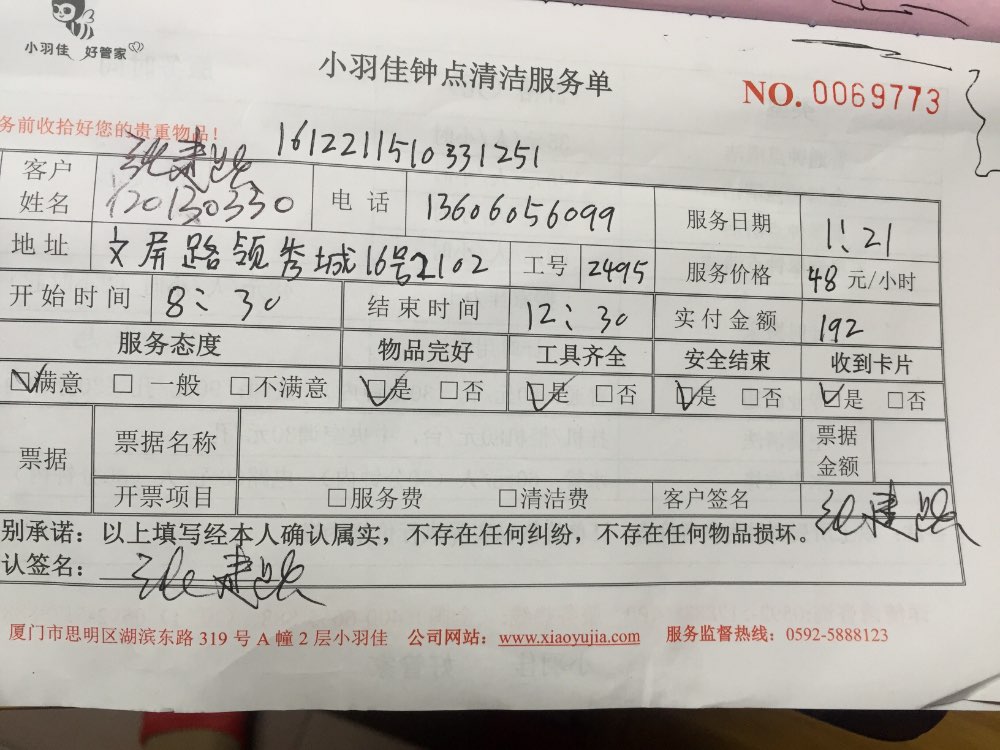 小羽佳 好管家
小羽佳钟点清洁服务单
NO. 0069773
务前收拾好您的贵重物品！
1612211510331251
客户姓名 120130330 电话 13606056099 服务日期 1:21
地址 文屏路领秀城16号2102 工号 2495 服务价格 48 元/小时
开始时间 8:30 结束时间 12:30 实付金额 192
服务态度 物品完好 工具齐全 安全结束 收到卡片
☑满意 □一般 □不满意 ☑是 □否 ☑是 □否 ☑是 □否 ☑是 □否
票据 票据名称 票据金额
开票项目 □服务费 □清洁费 客户签名
别承诺：以上填写经本人确认属实，不存在任何纠纷，不存在任何物品损坏。
认签名：
厦门市思明区湖滨东路 319 号 A 幢 2 层小羽佳 公司网站：www.xiaoyujia.com 服务监督热线：0592-5888123